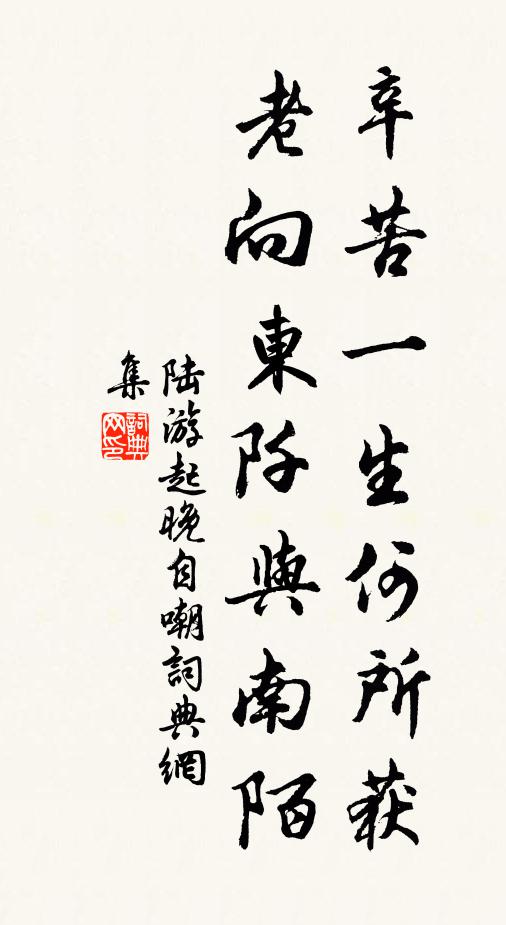 辛苦一生何所获
老向東阡與南陌
陆游起晚自嘲詞典網
集
詞典
网印